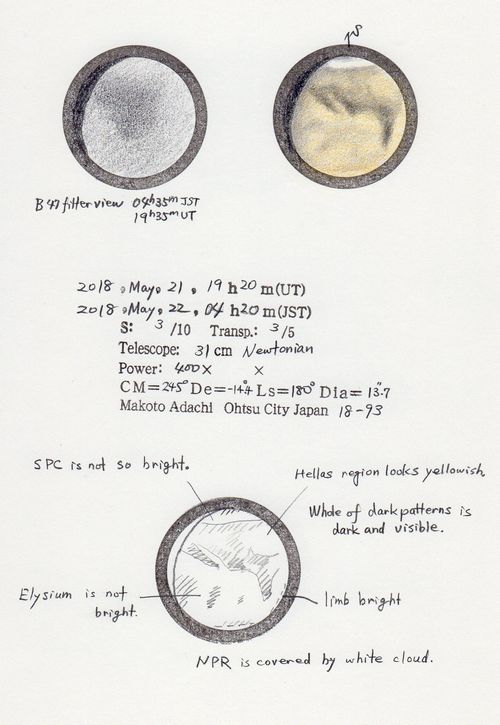 B47 filter view 04h35m JST
19h35m UT
2018, May, 21, 19 h 20 m (UT)
2018, May, 22, 04 h 20 m (JST)
S: 3 /10 Transp.: 3/5
Telescope: 31 cm Newtonian
Power: 400 × ×
CM=245° De=-14.4° Ls=180° Dia= 13".7
Makoto Adachi Ohtsu City Japan 18-93
SPC is not so bright.
Hellas region looks yellowish.
Whole of dark patterns is
dark and visible.
Elysium is not
bright.
limb bright
NPR is covered by white cloud.